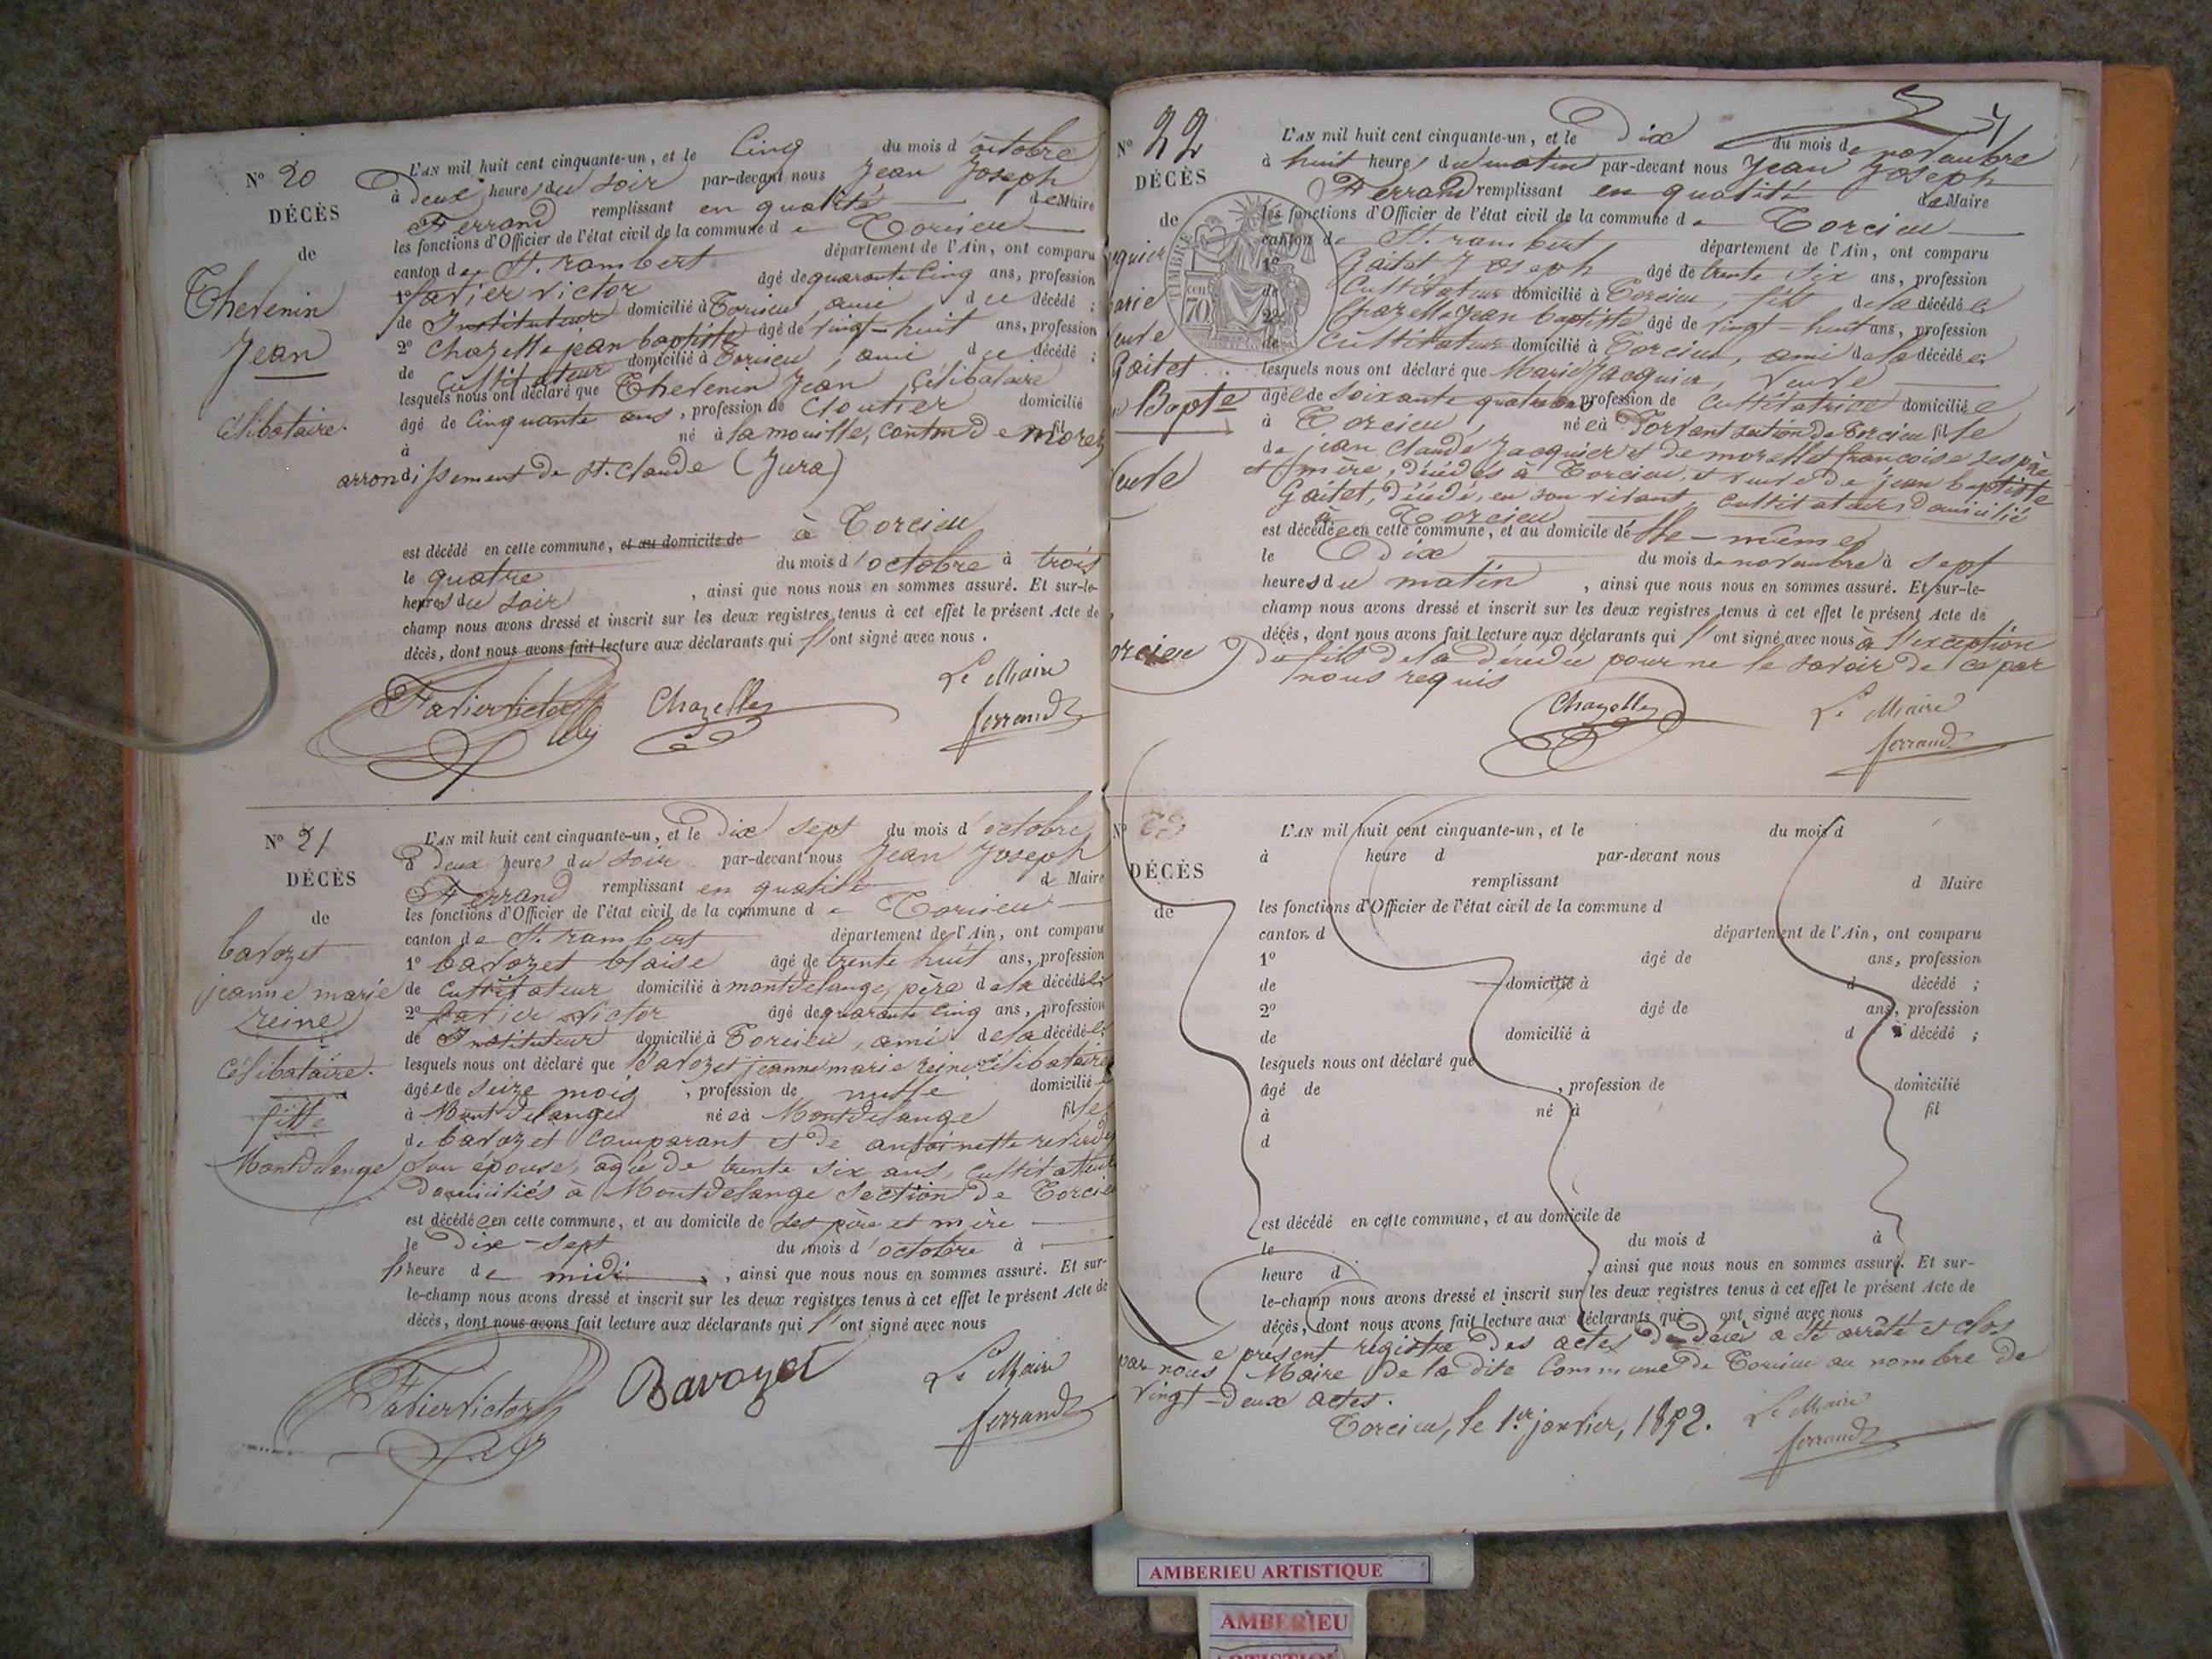 N° 20
DÉCÈS
de
Thevenin
Jean
célibataire.
L'AN mil huit cent cinquante-un, et le Cinq du mois d'octobre
à Deux heures du soir par-devant nous Jean Joseph
Ferrand remplissant en qualité de Maire
les fonctions d'Officier de l'état civil de la commune de Torcieu
canton de St. rambert département de l'Ain, ont comparu
1° favier victor âgé de quarante cinq ans, profession
de Instituteur domicilié à Torcieu, ami du décédé ;
2° Chazelle jean baptiste âgé de vingt-huit ans, profession
de Cultivateur domicilié à Torcieu, ami du décédé ;
lesquels nous ont déclaré que Thevenin Jean, célibataire
âgé de Cinquante ans, profession de Cloutier domicilié
à né à la mouille, canton de morez fil
arrondissement de St. Claude (Jura)
est décédé en cette commune, et au domicile de à Torcieu
le quatre du mois d'octobre à trois
heures du soir, ainsi que nous nous en sommes assuré. Et sur-le-
champ nous avons dressé et inscrit sur les deux registres tenus à cet effet le présent Acte de
décès, dont nous avons fait lecture aux déclarants qui l'ont signé avec nous.
Favier Victor Chazelle Le Maire
ferrand
N° 21
DÉCÈS
de
bavozet
jeanne marie
reine
célibataire.
fille
Montdelange
L'AN mil huit cent cinquante-un, et le Dix sept du mois d'octobre
à Deux heures du soir par-devant nous Jean Joseph
Ferrand remplissant en qualité d Maire
les fonctions d'Officier de l'état civil de la commune de Torcieu
canton de St. rambert département de l'Ain, ont comparu
1° bavozet blaise âgé de trente huit ans, profession
de Cultivateur domicilié à montdelange, père de la décédée ;
2° favier victor âgé de quarante cinq ans, profession
de Instituteur domicilié à Torcieu, ami de la décédée ;
lesquels nous ont déclaré que bavozet jeanne marie reine célibataire
âgée de seize mois, profession de nulle domiciliée
à Montdelange née à Montdelange fille
de bavozet Comparant et de antoinette
son épouse, agée de trente six ans, Cultivateurs
domiciliés à Montdelange Section de Torcieu
est décédée en cette commune, et au domicile de ses père et mère
le Dix-sept du mois d'octobre à
l'heure de midi, ainsi que nous nous en sommes assuré. Et sur-
le-champ nous avons dressé et inscrit sur les deux registres tenus à cet effet le présent Acte de
décès, dont nous avons fait lecture aux déclarants qui l'ont signé avec nous
Favier Victor Bavozet Le Maire
ferrand
N° 22
DÉCÈS
de
Gaitet
Bapte
TIMBRE
cen 70
L'AN mil huit cent cinquante-un, et le Dix du mois de novembre
à huit heures du matin par-devant nous Jean Joseph
Ferrand remplissant en qualité de Maire
les fonctions d'Officier de l'état civil de la commune de Torcieu
canton de St. rambert département de l'Ain, ont comparu
1° Gaitet Joseph âgé de trente six ans, profession
de Cultivateur domicilié à Torcieu, fils de la décédée ;
2° Chazelle Jean baptiste âgé de vingt-huit ans, profession
de Cultivateur domicilié à Torcieu, ami de la décédée ;
lesquels nous ont déclaré que Marie Jacquier, veuve
âgée de soixante quatre ans profession de Cultivatrice domiciliée
à Torcieu, née à Dorvant section de Torcieu fille
de jean claude Jacquier et de morellet francoise ses père
et mère, décédés à Torcieu, et veuve de jean baptiste
Gaitet, décédé, en son vivant cultivateur, domicilié
à Torcieu
est décédée en cette commune, et au domicile de elle-même
le Dix du mois de novembre à sept
heures du matin, ainsi que nous nous en sommes assuré. Et sur-le-
champ nous avons dressé et inscrit sur les deux registres tenus à cet effet le présent Acte de
décès, dont nous avons fait lecture aux déclarants qui l'ont signé avec nous à l'exception
du fils de la décédée pour ne le savoir de ce par
nous requis
Chazelle Le Maire
ferrand
N°
DÉCÈS
de
L'AN mil huit cent cinquante-un, et le du mois d
à heure d par-devant nous
remplissant d Maire
les fonctions d'Officier de l'état civil de la commune d
canton d département de l'Ain, ont comparu
1° âgé de ans, profession
de domicilié à d décédé ;
2° âgé de ans, profession
de domicilié à d décédé ;
lesquels nous ont déclaré que
âgé de , profession de domicilié
à né à fil
d
est décédé en cette commune, et au domicile de
le du mois d à
heure d , ainsi que nous nous en sommes assuré. Et sur-
le-champ nous avons dressé et inscrit sur les deux registres tenus à cet effet le présent Acte de
décès, dont nous avons fait lecture aux déclarants qui ont signé avec nous
Le présent registre des actes de décès a été arrêté et clos
par nous Maire de la dite Commune de Torcieu au nombre de
vingt-deux actes.
Torcieu, le 1.er janvier, 1852. Le Maire
ferrand
AMBERIEU ARTISTIQUE
AMBERIEU
ARTISTIQUE